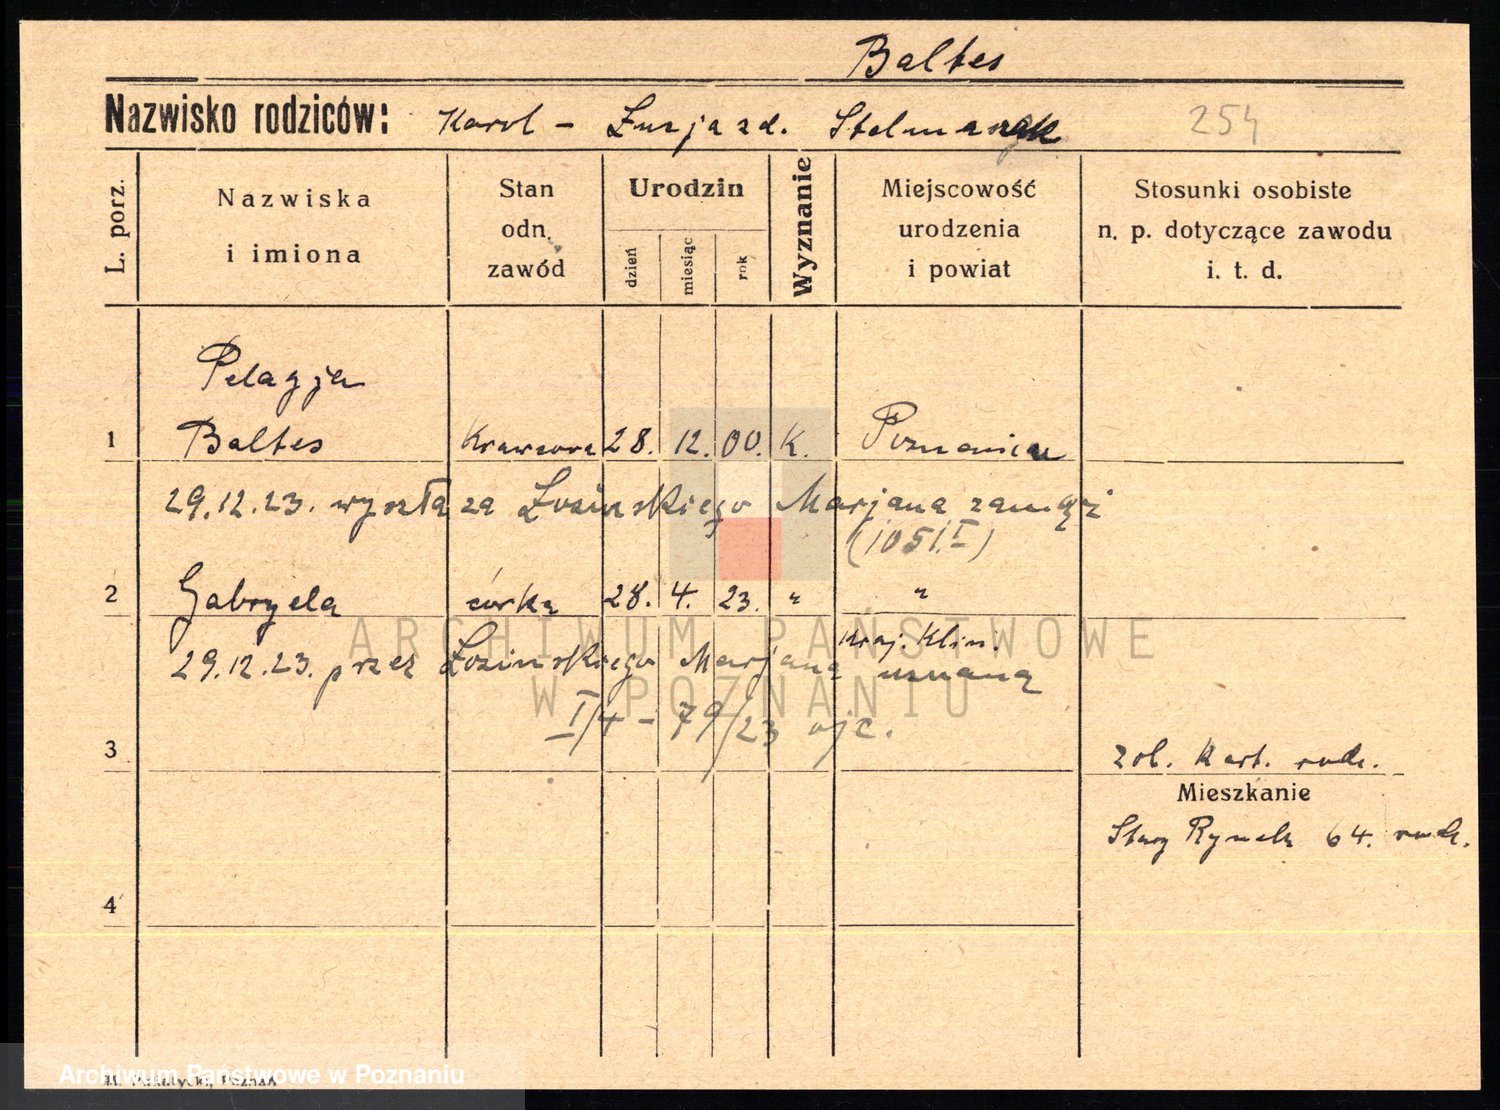 Baltes
Nazwisko rodziców: Karol - Łucja zd. Stelmaszyk 254
L. porz.
Nazwiska
i imiona
Stan
odn.
zawód
Urodzin
dzień
miesiąc
rok
Wyznanie
Miejscowość
urodzenia
i powiat
Stosunki osobiste
n. p. dotyczące zawodu
i. t. d.
Pelagja
1 Baltes Krawcowa 28. 12. 00. K. Poznaniu
29.12.23. wyszła za Łosińskiego Marjana zamąż
(1051.I)
2 Gabryela córka 28. 4. 23. " "
Kraj. Klin.
29.12.23. przez Łosińskiego Marjana uznaną
I/4 - 79/23 ojc.
3
zob. kart. rodz.
Mieszkanie
Stary Rynek 64. rodz.
4
ARCHIWUM PAŃSTWOWE
W POZNANIU
Archiwum Państwowe w Poznaniu